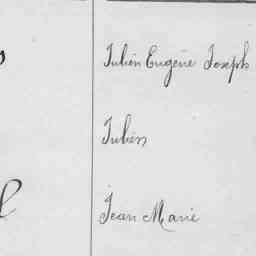 Julien Eugène Joseph
Julien
Jean Marie